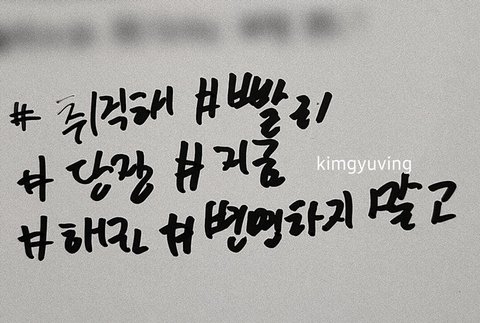 # 취직해 #빨리
# 당장 # 지금
kimgyuving
#해라 #변명하지 말고